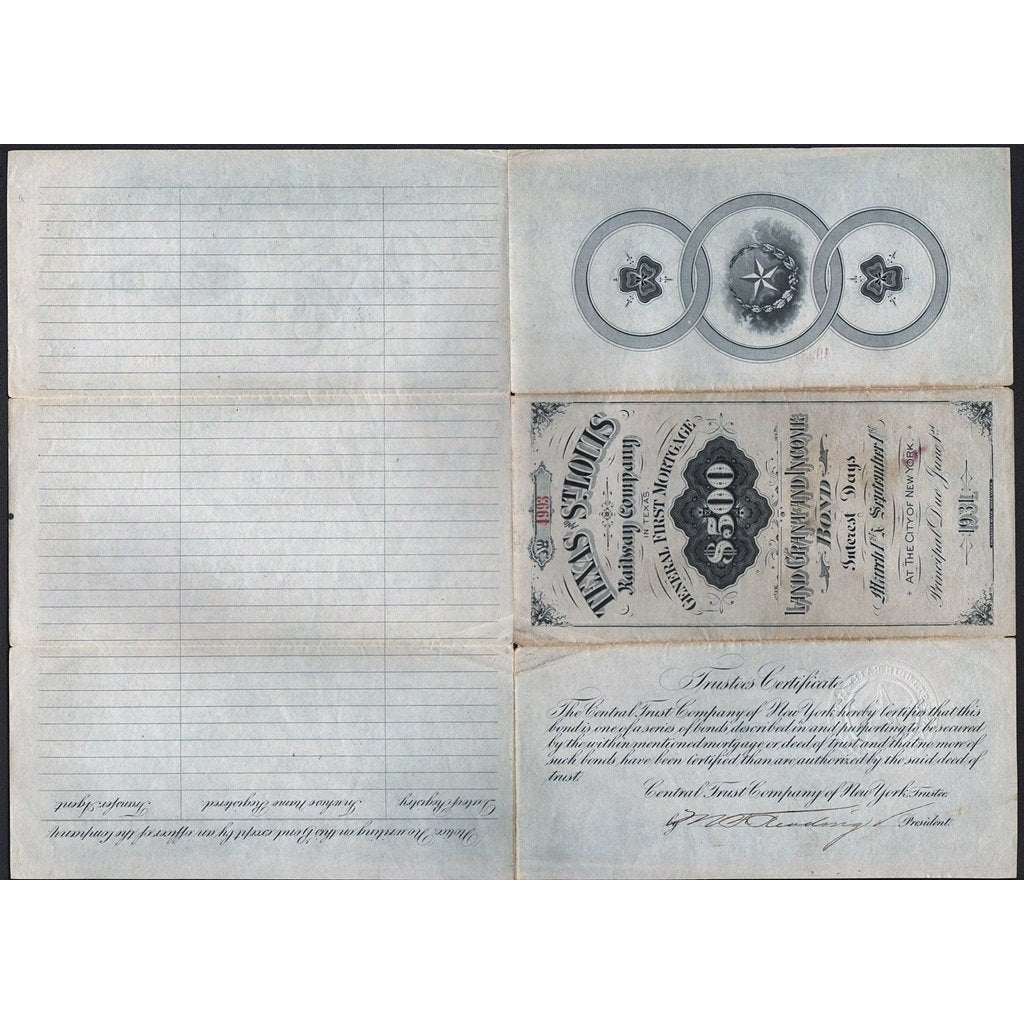 No 4993
TEXAS and ST. LOUIS
Railway Company
IN TEXAS
GENERAL FIRST MORTGAGE
$500
LAND GRANT AND INCOME
BOND
Interest Days
March 1st & September 1st
AT THE CITY OF NEW YORK
Principal Due June 1st
1931
Trustees Certificate
The Central Trust Company of New York hereby certifies that this
bond is one of a series of bonds described in and purporting to be secured
by the within mentioned mortgage or deed of trust and that no more of
such bonds have been certified than are authorized by the said deed of
trust.
Central Trust Company of New York, Trustee
by President.
Notice No writing on this Bond except by an officer of the Company
Date of Registry In whose Name Registered Transfer Agent